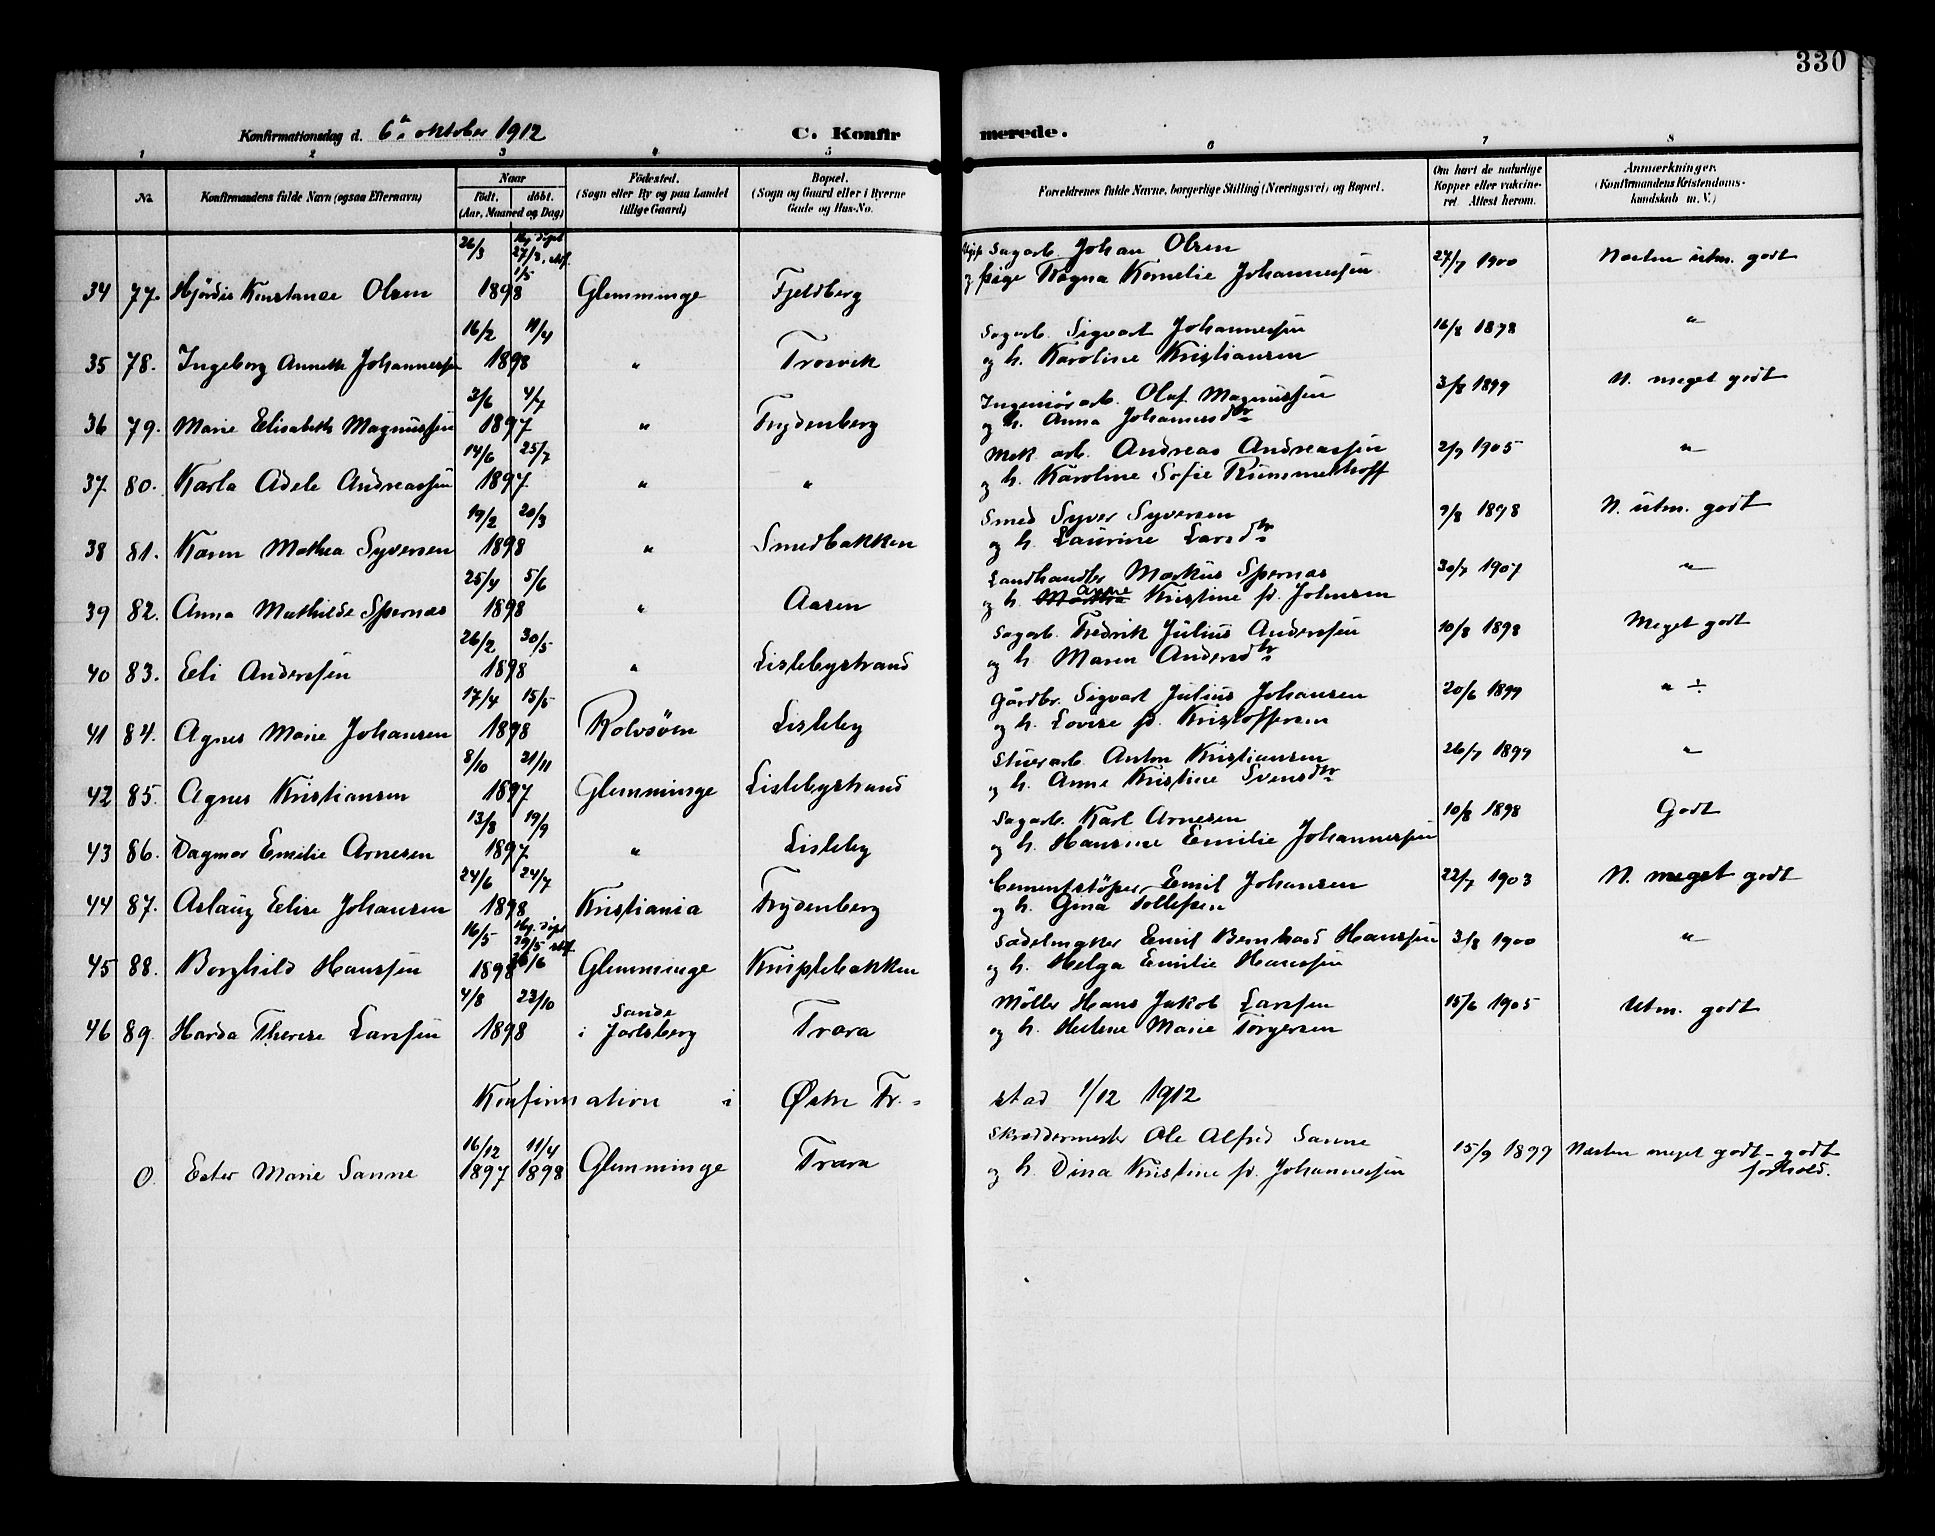 330
Konfirmationsdag d. 6te oktober 1912 C. Konfirmerede.
1 2 3 4 5 6 7 8
No. Konfirmandens fulde Navn (ogsaa Efternavn) Naar født. døbt. (Aar, Maaned og Dag) Fødested. (Sogn eller By og paa Landet tillige Gaard) Bopæl. (Sogn og Gaard eller i Byerne Gade og Hus-No. Forældrenes fulde Navne, borgerlige Stilling (Næringsvei) og Bopæl. Om havt de naturlige Kopper eller vaksineret Attest herom. Anmærkninger. (Konfirmandens Kristendomskundskab m. V.)
26/3 Hj. døpt 27/3, stf. 1/5 Ugift Sagarb. Johan Olsen 27/7 1900 Næsten utm. godt
34 77. Hjördis Konstanse Olsen 1898 Glemminge Fjeldberg og pige Ragna Kornelie Johannessen
16/2 11/4 Sagarb. Sigvart Johannessen 16/8 1898 "
35 78. Ingeborg Annette Johannessen 1898 " Trosvik og h. Karoline Kristiansen
2/6 4/7 Ingeniörarb. Olaf Magnussen 3/8 1899 N. meget godt
36 79. Marie Elisabeth Magnussen 1897 " Frydenberg og h. Anna Johannesdtr
14/6 25/7 Mek. arb. Andreas Andreassen 2/9 1905 "
37 80. Karla Adele Andreassen 1897 " " og h. Karoline Sofie Rummelhoff
19/2 20/3 Smed Syver Syversen 9/8 1898 N. utm. godt
38 81. Karen Mathea Syversen 1898 " Smedbakken og h. Laurine Larsdtr
25/4 5/6 Landhandler Markus Spernæs 30/7 1907 "
39 82. Anna Mathilde Spernæs 1898 " Aasen og h. Anne Kristine f. Johnsen
26/2 30/5 Sagarb. Fredrik Julius Anderssen 10/8 1898 Meget godt
40 83. Eli Anderssen 1898 " Lislebystrand og h. Maren Andersdtr
17/4 15/5 Gårdbr. Sigvart Julius Johansen 20/6 1899 " ÷
41 84. Agnes Marie Johansen 1898 Rolvsöen Lisleby og h. Lovise f. Kristoffersen
8/10 21/11 Stuerarb. Anton Kristiansen 26/7 1899 "
42 85. Agnes Kristiansen 1897 Glemminge Lislebystrand og h. Anne Kristine Svensdtr
13/8 19/9 Sagarb. Karl Arnesen 10/8 1898 Godt
43 86. Dagmar Emilie Arnesen 1897 " Lisleby og h. Hansine Emilie Johannessen
24/6 24/7 Cementstöper Emil Johansen 22/7 1903 N. meget godt
44 87. Aslaug Elise Johansen 1898 Kristiania Frydenberg og h. Gina Tollefsen
16/5 Hj. döpt 29/5 stf. 26/6 Sadelmaker Emil Bernhard Hanssen 3/8 1900 "
45 88. Borghild Hanssen 1898 Glemminge Kniplebakken og h. Helga Emilie Hanssen
4/8 23/10 Sande Möller Hans Jakob Larssen 15/6 1905 Utm. godt
46 89. Harda Therese Larssen 1898 i Jarlsberg Trara og h. Helene Marie Torgersen
Konfirmation i Østre Fr.=stad 1/12 1912
16/12 11/4 Skræddermester Ole Alfred Sanne 15/9 1899 Næsten meget godt - godt
0. Ester Marie Sanne 1897 1898 Glemminge Trara og h. Dina Kristine f. Johannessen forhold.